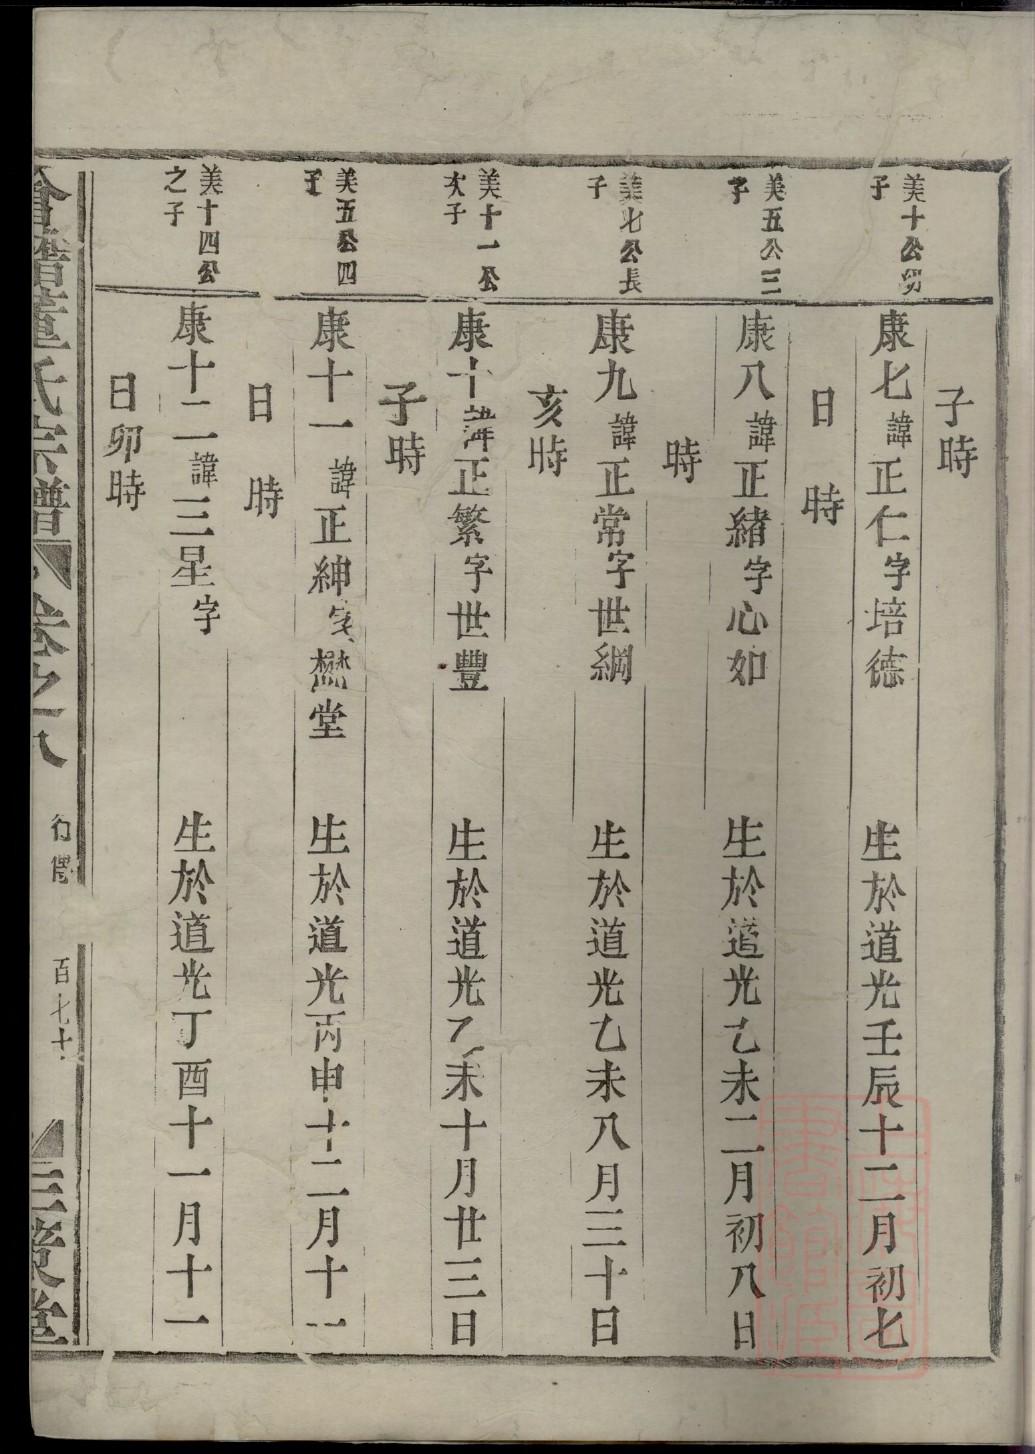 子時
美十公幼
子
康七諱正仁字培德
生於道光壬辰十二月初七
日 時
美五公三
子
康八諱正緒字心如
生於道光乙未二月初八日
時
美七公長
子
康九諱正常字世綱
生於道光乙未八月三十日
亥時
美十一公
次子
康十諱正繁字世豐
生於道光乙未十月廿三日
子時
美五公四
子
康十一諱正紳字懋堂
生於道光丙申十二月十一
日 時
美十四公
之子
康十二諱三星字
生於道光丁酉十一月十一
日卯時
合譜董氏宗譜
卷之八
行傳
百七十
三策堂